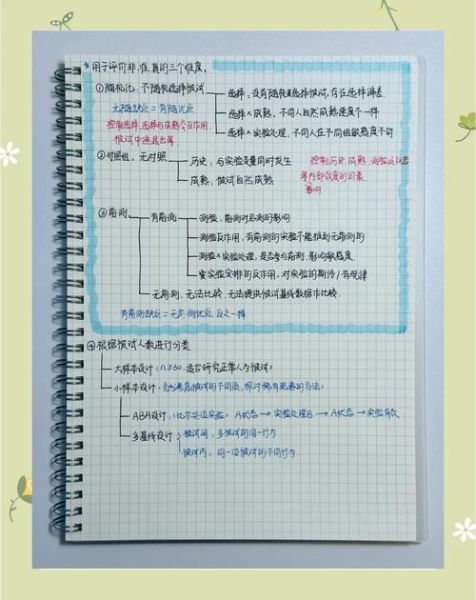 * 用于评价非、准、真的三个维度。
①随机化,不随机选择被试 — 选择,没有随机选择被试,存在选择偏差
无随机缺点=有随机优点 选择×成熟,不同人自然成熟速度不一样
控制选择,选择与成熟交互作用 选择×实验处理,不同人在不同组敏感度不同
被试中途退出等
②对照组,无对照 — 历史,与实验变量同时发生 控制历史,成熟,测验
成熟,被试自然成熟 等内部效度的因素
影响
③前测 — 有前测 — 测验,前测对后测的影响
测验反作用,有前测的实验不能推到无前测的
测验×实验处理,是否参与前测,影响敏感度
实验安排的反作用,对实验的期待/有规律
无前测,无法比较,无法提供被试基线数据作比较.
有前测缺点=无前测优点,反之一样
④根据被试人数进行分类
大样本设计(n≥30,适合研究正常人与被试)
小样本设计
ABA设计 A状态→实验处理B→A状态→实验有效
多基线设计 被试间,多被试的同一行为
被试内,同一被试的不同行为